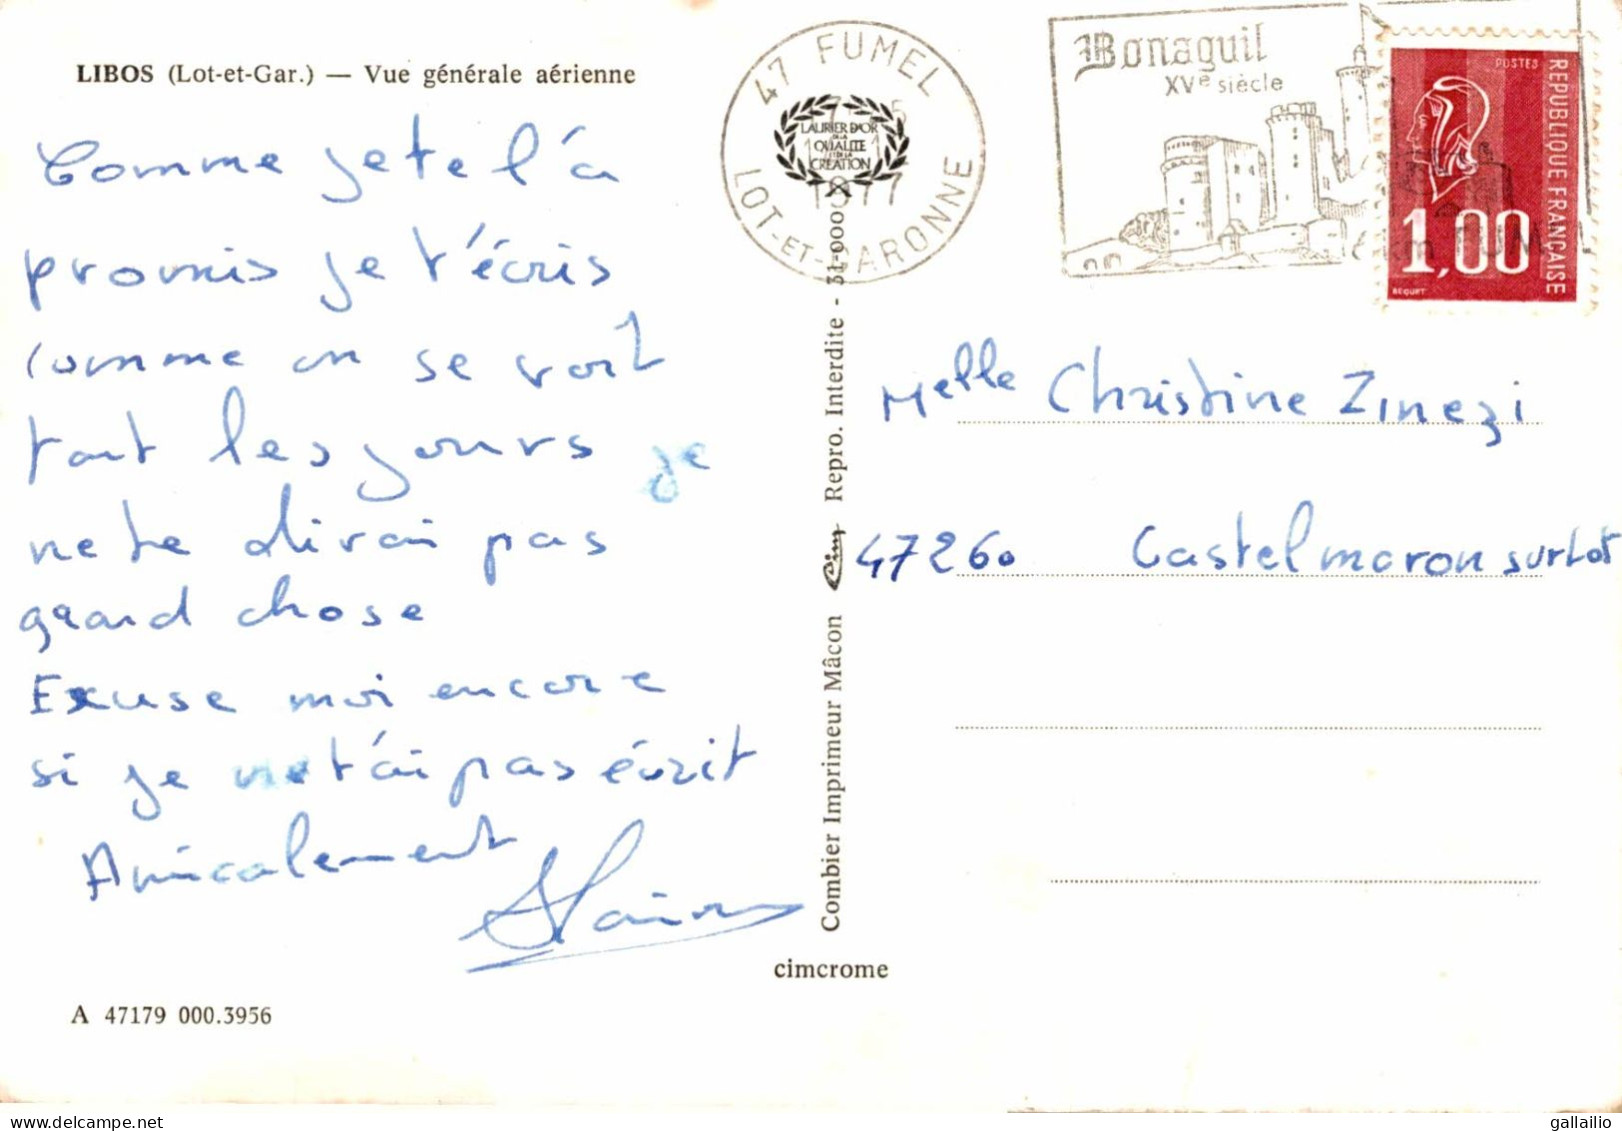 LIBOS (Lot-et-Gar.) — Vue générale aérienne
Comme je te l'a
promis je t'écris
comme on se voit
tout les jours je
ne te dirai pas
grand chose
Excuse moi encore
si je ne t'ai pas écrit
Amicalement
Alain
A 47179 000.3956
47 FUMEL
LOT-ET-GARONNE
1977
LAURIER D'OR
DE LA
QUALITE
ET DE LA
CREATION
Bonaguil
XVe siècle
POSTES
REPUBLIQUE FRANÇAISE
1,00
BEQUET
Melle Christine Zinezi
47260 Castelmoron sur Lot
Combier Imprimeur Mâcon Cim Repro. Interdite - 31-0000
cimcrome
gallailio